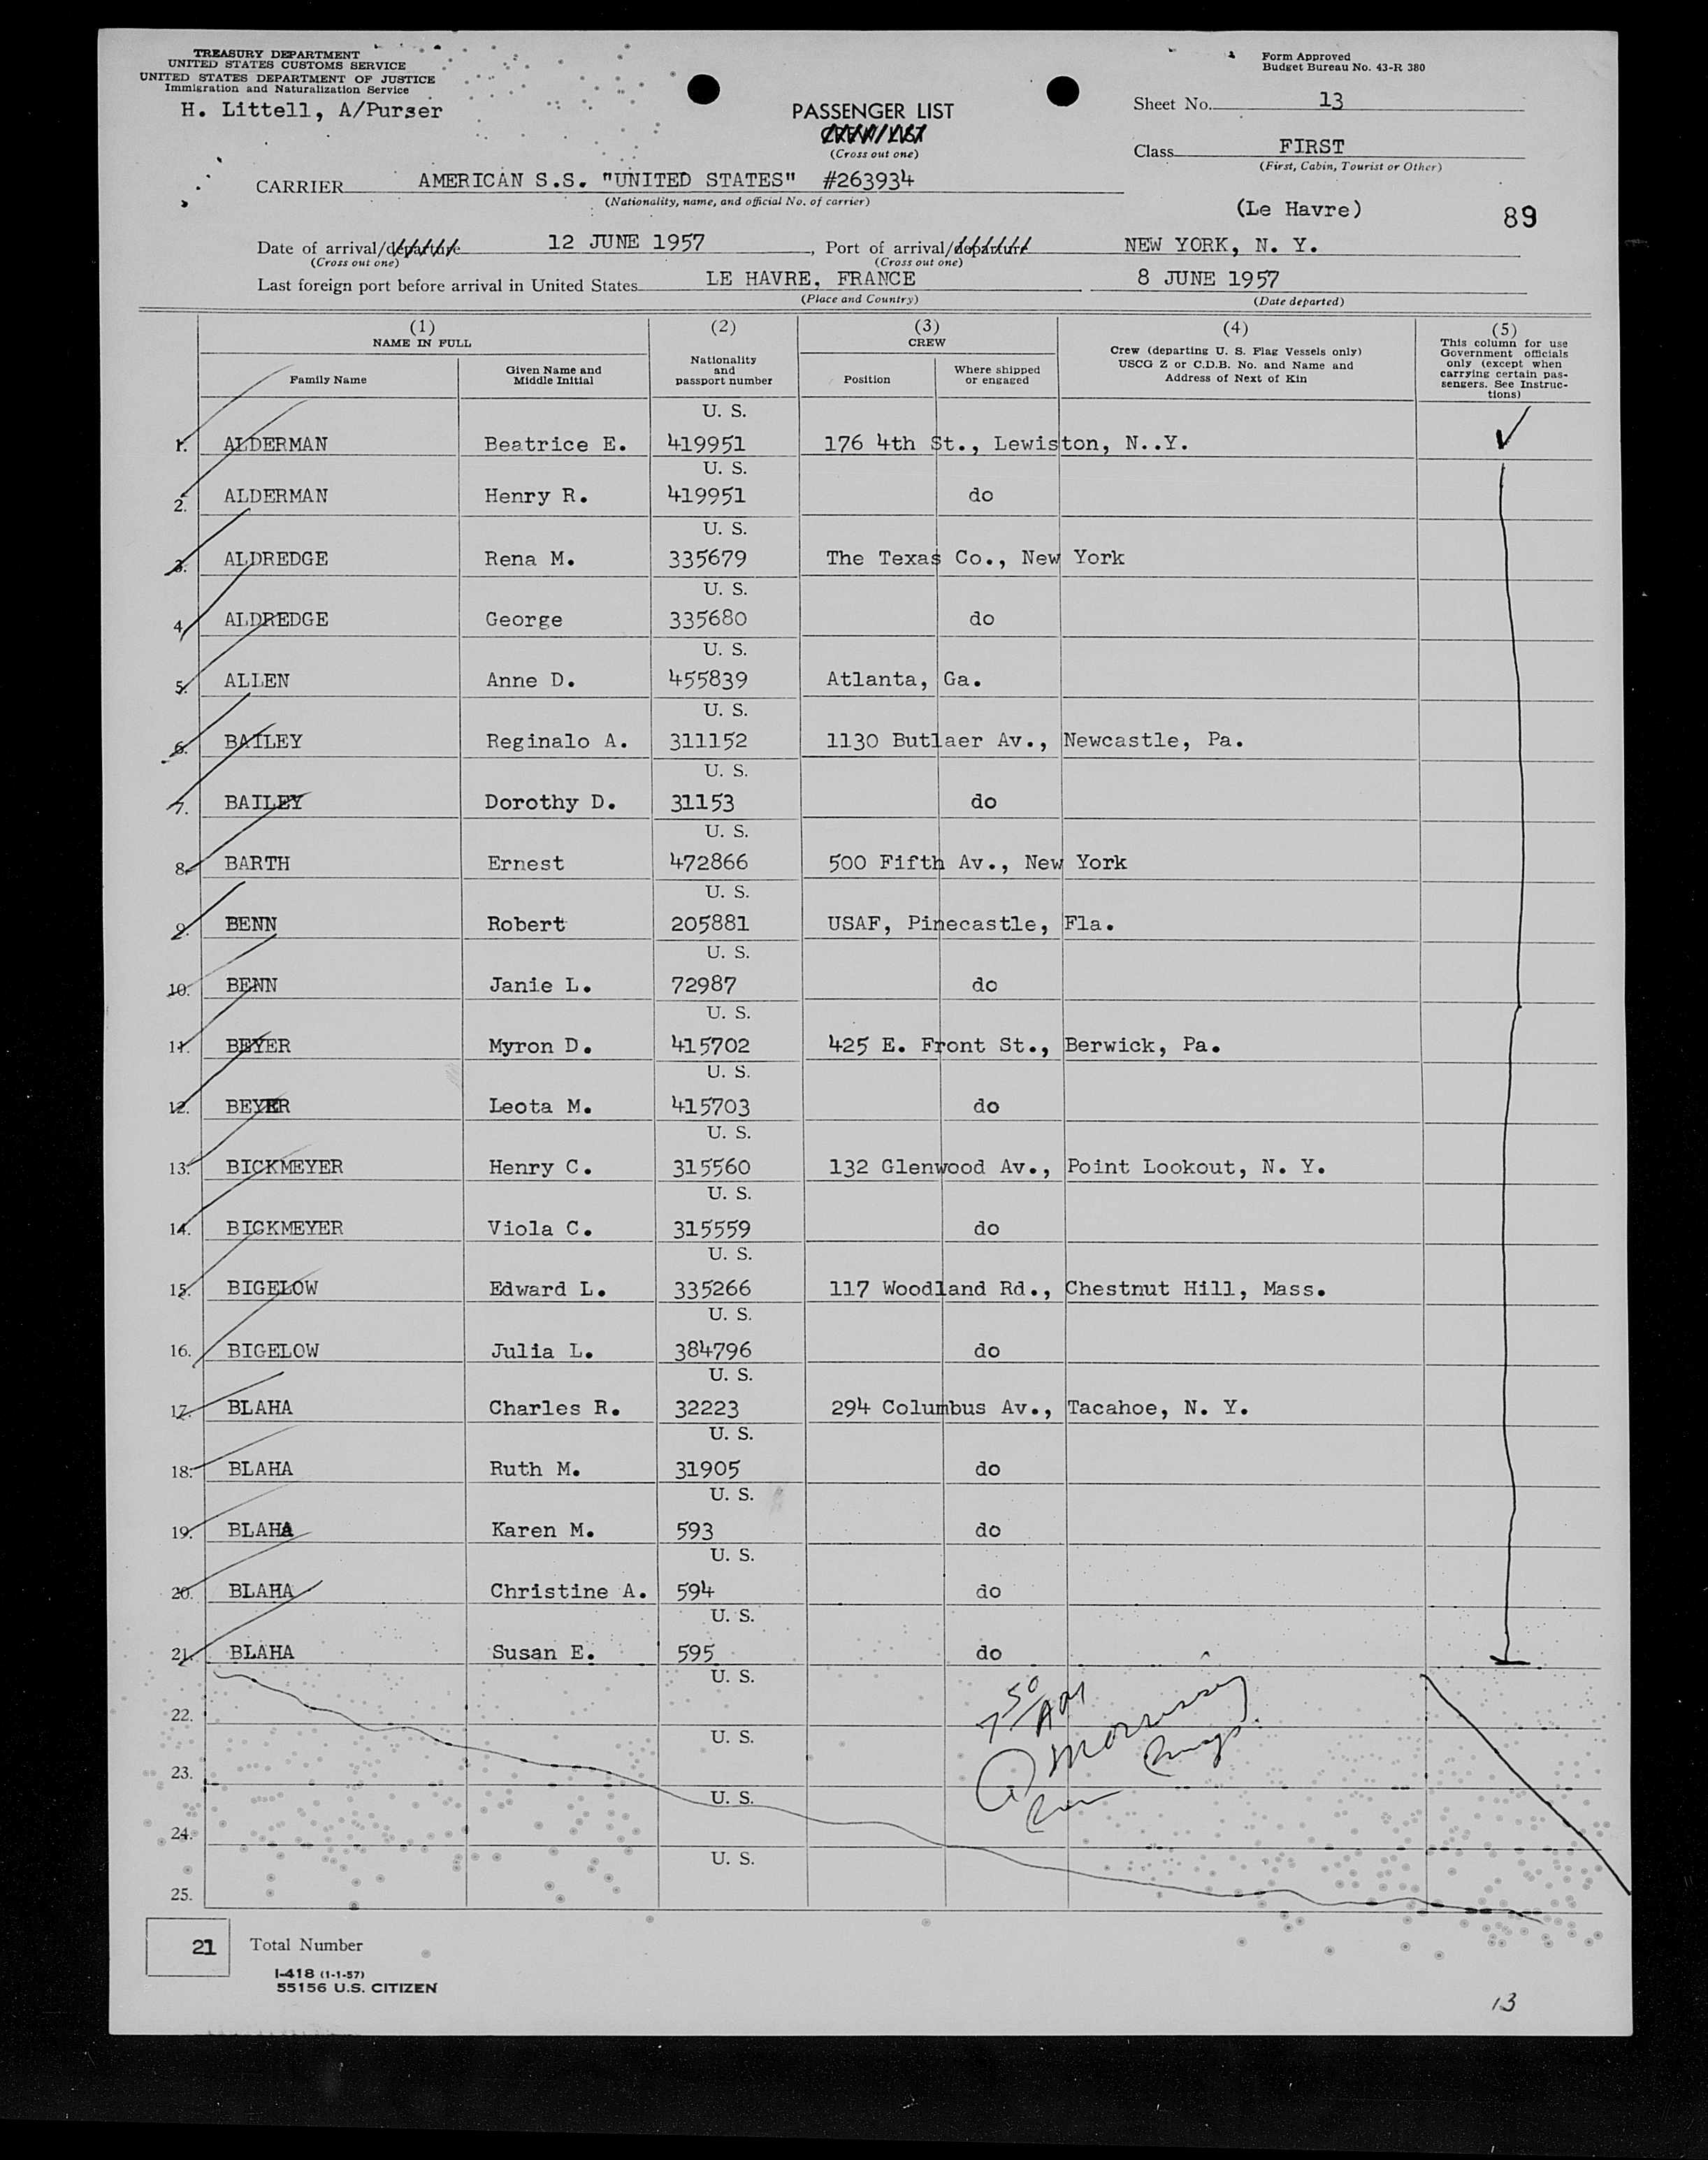 TREASURY DEPARTMENT
UNITED STATES CUSTOMS SERVICE
UNITED STATES DEPARTMENT OF JUSTICE
Immigration and Naturalization Service
H. Littell, A/Purser
Form Approved
Budget Bureau No. 43-R 380
PASSENGER LIST
CREW LIST
(Cross out one)
Sheet No. 13
Class FIRST
(First, Cabin, Tourist or Other)
CARRIER AMERICAN S.S. "UNITED STATES" #263934
(Nationality, name, and official No. of carrier)
(Le Havre) 89
Date of arrival/departure 12 JUNE 1957, Port of arrival/departure NEW YORK, N. Y.
(Cross out one) (Cross out one)
Last foreign port before arrival in United States LE HAVRE, FRANCE 8 JUNE 1957
(Place and Country) (Date departed)
(1) NAME IN FULL
Family Name
Given Name and Middle Initial
(2) Nationality and passport number
(3) CREW
Position
Where shipped or engaged
(4) Crew (departing U. S. Flag Vessels only) USCG Z or C.D.B. No. and Name and Address of Next of Kin
(5) This column for use Government officials only (except when carrying certain passengers. See Instructions)
U. S.
1. ALDERMAN Beatrice E. 419951 176 4th St., Lewiston, N..Y.
U. S.
2. ALDERMAN Henry R. 419951 do
U. S.
3. ALDREDGE Rena M. 335679 The Texas Co., New York
U. S.
4. ALDREDGE George 335680 do
U. S.
5. ALLEN Anne D. 455839 Atlanta, Ga.
U. S.
6. BAILEY Reginalo A. 311152 1130 Butlaer Av., Newcastle, Pa.
U. S.
7. BAILEY Dorothy D. 31153 do
U. S.
8. BARTH Ernest 472866 500 Fifth Av., New York
U. S.
9. BENN Robert 205881 USAF, Pinecastle, Fla.
U. S.
10. BENN Janie L. 72987 do
U. S.
11. BEYER Myron D. 415702 425 E. Front St., Berwick, Pa.
U. S.
12. BEYER Leota M. 415703 do
U. S.
13. BICKMEYER Henry C. 315560 132 Glenwood Av., Point Lookout, N. Y.
U. S.
14. BICKMEYER Viola C. 315559 do
U. S.
15. BIGELOW Edward L. 335266 117 Woodland Rd., Chestnut Hill, Mass.
U. S.
16. BIGELOW Julia L. 384796 do
U. S.
17. BLAHA Charles R. 32223 294 Columbus Av., Tacahoe, N. Y.
U. S.
18. BLAHA Ruth M. 31905 do
U. S.
19. BLAHA Karen M. 593 do
U. S.
20. BLAHA Christine A. 594 do
U. S.
21. BLAHA Susan E. 595 do
U. S.
22.
U. S.
23.
U. S.
24.
U. S.
25.
7 50
Morrissey
21 Total Number
I-418 (1-1-57)
55156 U.S. CITIZEN
13